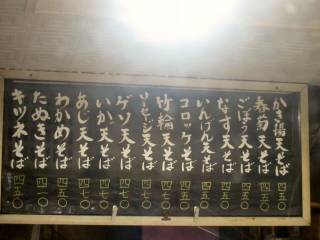 かき揚天そば 四五〇
春菊天そば 四五〇
ごぼう天そば 四五〇
なす天そば 四五〇
いんげん天そば 四五〇
コロッケそば 四五〇
竹輪天そば 四五〇
ソーセージ天そば 四五〇
ゲソ天そば 四七〇
いか天そば 四七〇
あじ天そば 四七〇
わかめそば 四五〇
たぬきそば 四一〇
キツネそば 四五〇